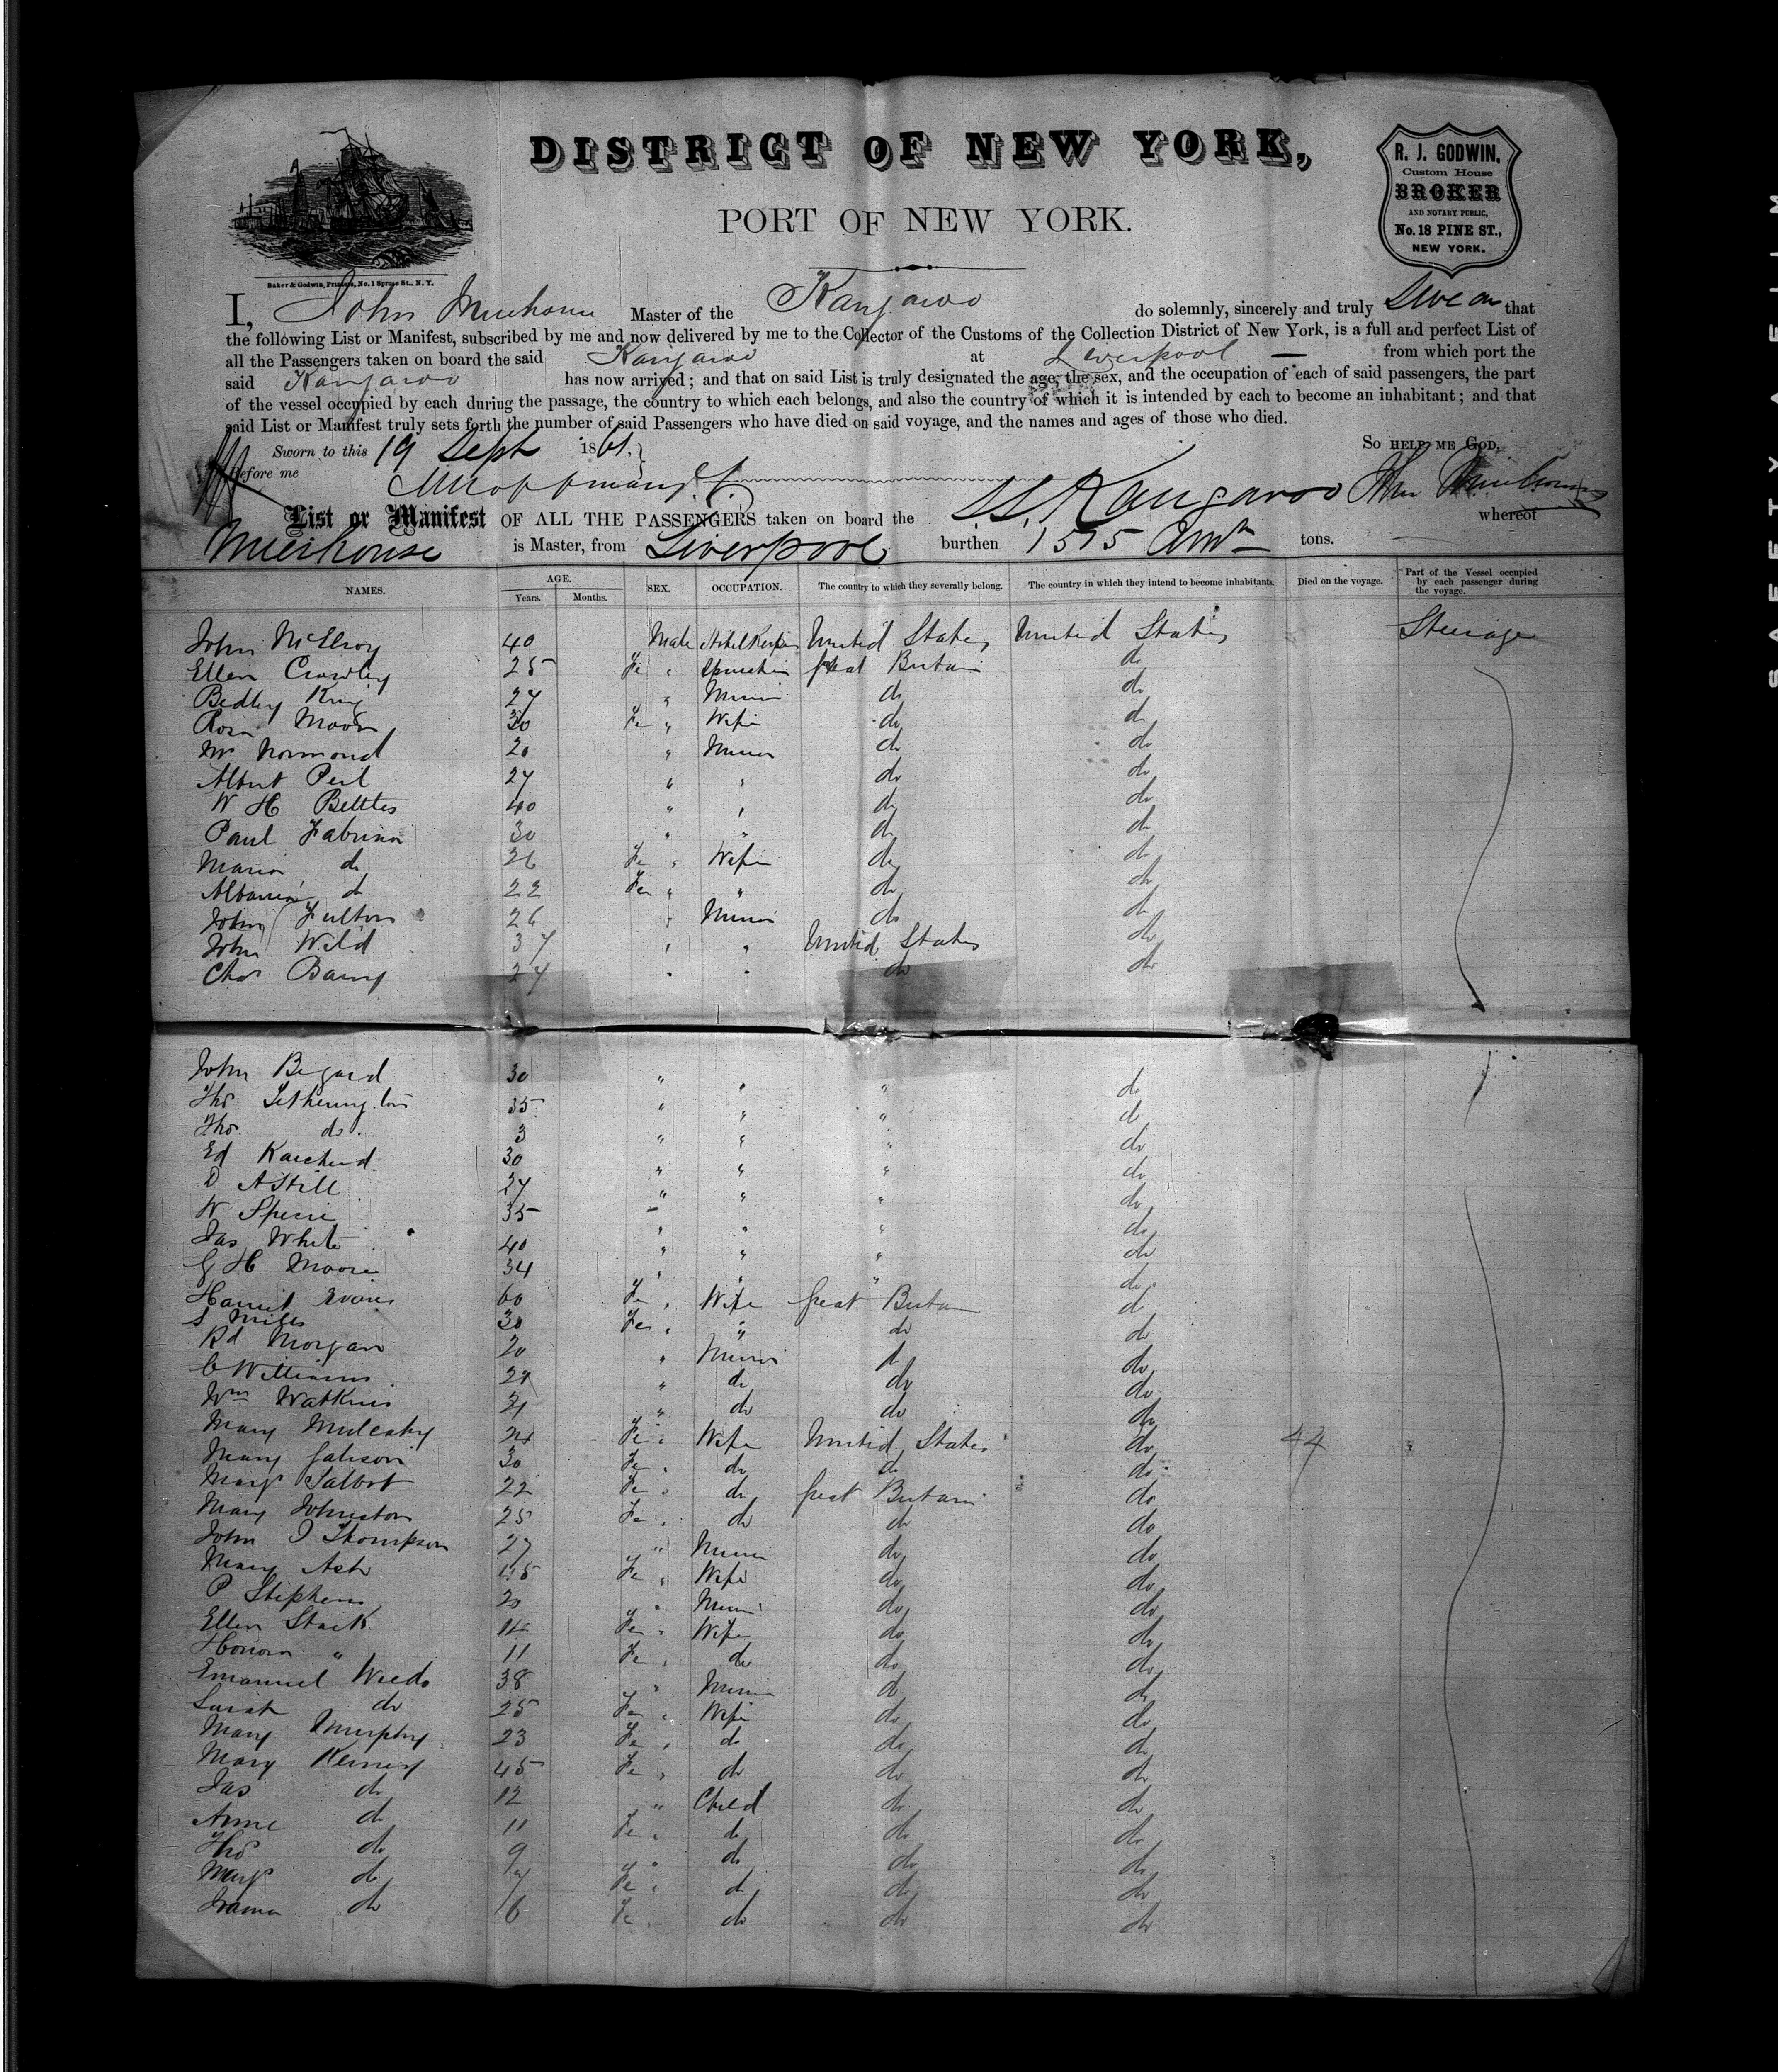 DISTRICT OF NEW YORK,
PORT OF NEW YORK.
R. J. GODWIN,
Custom House
BROKER
AND NOTARY PUBLIC,
No. 18 PINE ST.,
NEW YORK.
Baker & Godwin, Printers, No. 1 Spruce St., N. Y.
I, John Muirhouse Master of the Kangaroo do solemnly, sincerely and truly Swear that
the following List or Manifest, subscribed by me and now delivered by me to the Collector of the Customs of the Collection District of New York, is a full and perfect List of
all the Passengers taken on board the said Kangaroo at Liverpool — from which port the
said Kangaroo has now arrived; and that on said List is truly designated the age, the sex, and the occupation of each of said passengers, the part
of the vessel occupied by each during the passage, the country to which each belongs, and also the country of which it is intended by each to become an inhabitant; and that
said List or Manifest truly sets forth the number of said Passengers who have died on said voyage, and the names and ages of those who died.
Sworn to this 19 Sept 1861. So HELP ME GOD,
Before me
List or Manifest OF ALL THE PASSENGERS taken on board the S.S. Kangaroo whereof
Muirhouse is Master, from Liverpool burthen 1575 tons.
NAMES. AGE. Years. Months. SEX. OCCUPATION. The country to which they severally belong. The country in which they intend to become inhabitants. Died on the voyage. Part of the Vessel occupied by each passenger during the voyage.
John McElroy 40 Male Hotel Keeper United States United States Steerage
Ellen Crowley 25 Fe " Spinster Great Britain do
King 27 " Miner do do
Rosa Moon 30 Fe " Wife do do
Normond 20 " Miner do do
Albert Peil 27 " " do do
W H Beltles 40 " " do do
Paul Fabrina 30 " " do do
Maria do 26 Fe " Wife do do
do 22 Fe " " do do
John Fulton 26 " Miner do do
John Wild 37 " " United States do
Chas Barry 27 " " do do
John Begard 30 " " " do
Thos Tetherington 35 " " " do
Thos do 3 " " " do
Ed 30 " " " do
D Astill 27 " " " do
W 35 " " " do
Jas White 40 " " " do
G H Moore 34 " " " do
Harriet Evans 60 Fe " Wife Great Britain do
S Miles 30 Fe " " do do
Rd Morgan 20 " Miner do do
C Williams 24 " do do do
Wm Watkins 21 " do do do
Mary Mulcahy 24 Fe " Wife United States do 44
Mary 30 Fe " do do do
Margt Talbot 22 Fe " do Great Britain do
Mary Johnston 25 Fe " do do do
John J Thompson 27 " Miner do do
Mary Ash 45 Fe " Wife do do
P Stephens 20 " Miner do do
Ellen Stack 14 Fe " Wife do do
Honora " 11 Fe " do do do
Emanuel Weeds 38 " Miner do do
Sarah do 25 Fe " Wife do do
Mary Murphy 23 Fe " do do do
Mary Kenny 45 Fe " do do do
Jas do 12 " Child do do
Anne do 11 Fe " do do do
Thos do 9 " do do do
Margt do 7 Fe " do do do
do 6 Fe " do do do